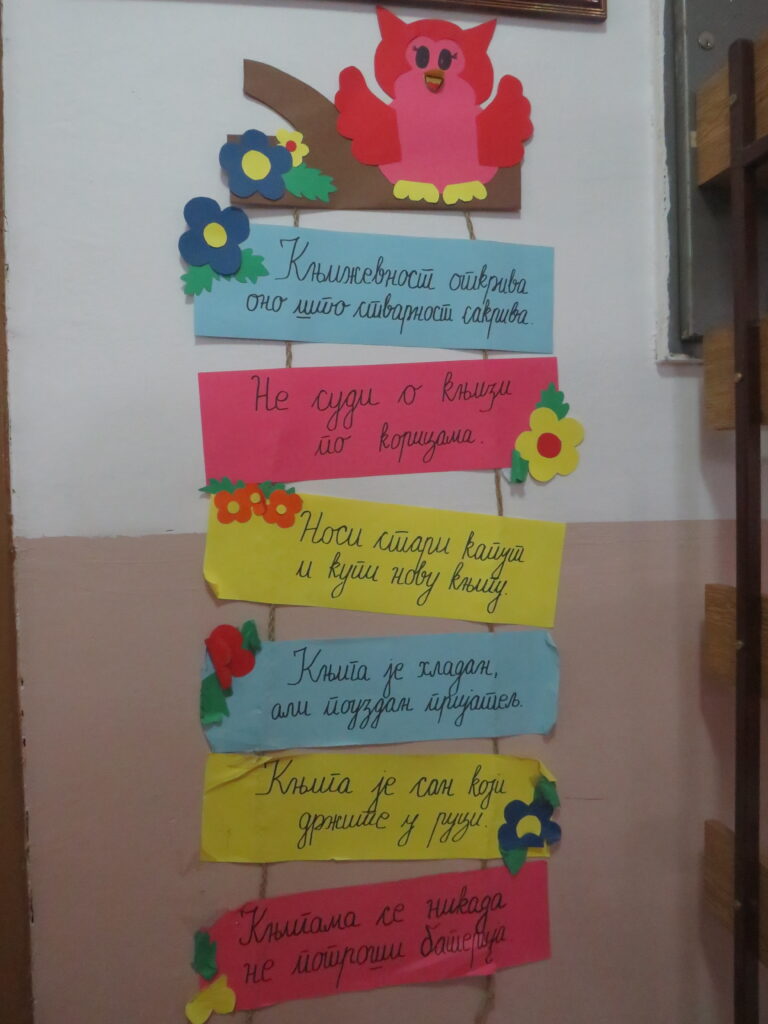 Књижевност открива
оно што стварност сакрива.
Не суди о књизи
по корицама.
Носи стари капут
и купи нову књигу.
Књига је хладан,
али поуздан пријатељ.
Књига је сан који
држите у руци.
Књигама се никада
не потроши батерија